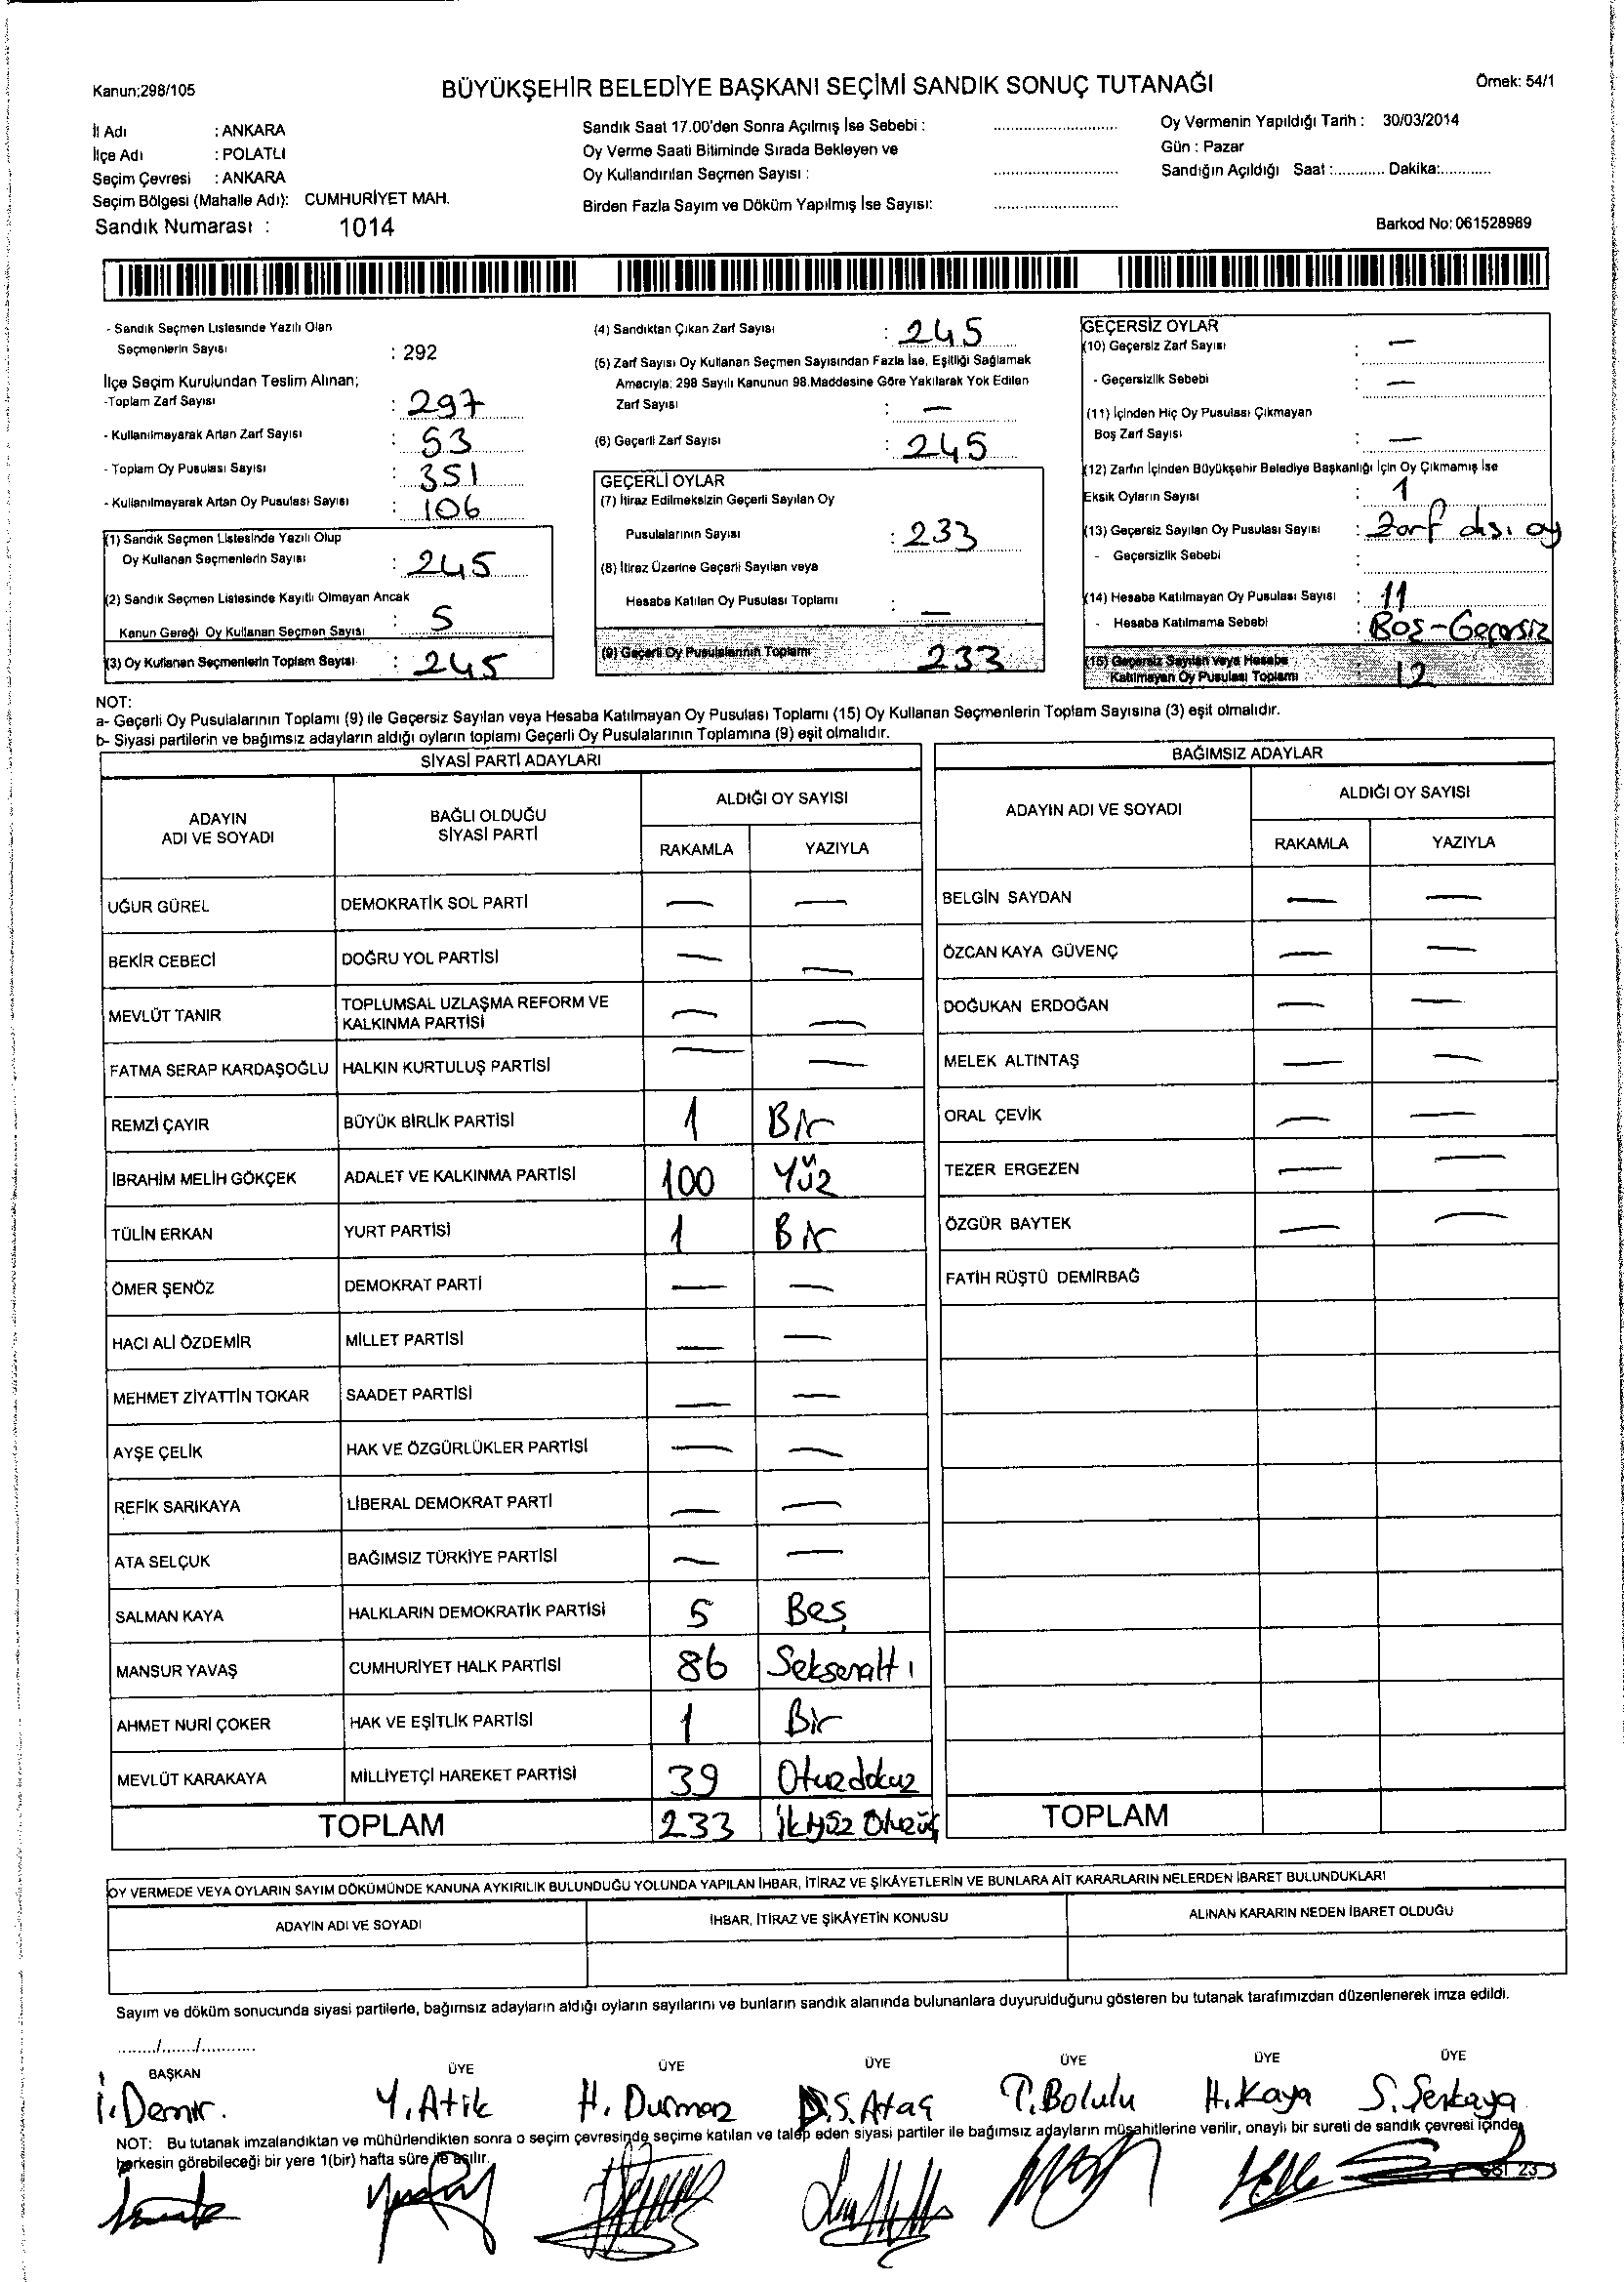 Kanun;298/105
BÜYÜKŞEHİR BELEDİYE BAŞKANI SEÇİMİ SANDIK SONUÇ TUTANAĞI
Örnek: 54/1
İl Adı : ANKARA
İlçe Adı : POLATLI
Seçim Çevresi : ANKARA
Seçim Bölgesi (Mahalle Adı): CUMHURİYET MAH.
Sandık Numarası : 1014
Sandık Saat 17.00'den Sonra Açılmış İse Sebebi :
Oy Verme Saati Bitiminde Sırada Bekleyen ve
Oy Kullandırılan Seçmen Sayısı :
Birden Fazla Sayım ve Döküm Yapılmış İse Sayısı:
Oy Vermenin Yapıldığı Tarih : 30/03/2014
Gün : Pazar
Sandığın Açıldığı Saat :............ Dakika:............
Barkod No: 061528989
- Sandık Seçmen Listesinde Yazılı Olan
Seçmenlerin Sayısı : 292
İlçe Seçim Kurulundan Teslim Alınan;
-Toplam Zarf Sayısı : 297
- Kullanılmayarak Artan Zarf Sayısı : 53
- Toplam Oy Pusulası Sayısı : 351
- Kullanılmayarak Artan Oy Pusulası Sayısı : 106
(1) Sandık Seçmen Listesinde Yazılı Olup
Oy Kullanan Seçmenlerin Sayısı : 245
(2) Sandık Seçmen Listesinde Kayıtlı Olmayan Ancak
Kanun Gereği Oy Kullanan Seçmen Sayısı : 5
(3) Oy Kullanan Seçmenlerin Toplam Sayısı : 245
(4) Sandıktan Çıkan Zarf Sayısı : 245
(5) Zarf Sayısı Oy Kullanan Seçmen Sayısından Fazla İse, Eşitliği Sağlamak
Amacıyla; 298 Sayılı Kanunun 98.Maddesine Göre Yakılarak Yok Edilen
Zarf Sayısı : —
(6) Geçerli Zarf Sayısı : 245
GEÇERLİ OYLAR
(7) İtiraz Edilmeksizin Geçerli Sayılan Oy
Pusulalarının Sayısı : 233
(8) İtiraz Üzerine Geçerli Sayılan veya
Hesaba Katılan Oy Pusulası Toplamı : —
(9) Geçerli Oy Pusulalarının Toplamı 233
GEÇERSİZ OYLAR
(10) Geçersiz Zarf Sayısı : —
- Geçersizlik Sebebi : —
(11) İçinden Hiç Oy Pusulası Çıkmayan
Boş Zarf Sayısı : —
(12) Zarfın İçinden Büyükşehir Belediye Başkanlığı İçin Oy Çıkmamış İse
Eksik Oyların Sayısı : 1
(13) Geçersiz Sayılan Oy Pusulası Sayısı : Zarf dışı oy
- Geçersizlik Sebebi :
(14) Hesaba Katılmayan Oy Pusulası Sayısı : 11
- Hesaba Katılmama Sebebi : Boş-Geçersiz
(15) Geçersiz Sayılan veya Hesaba
Katılmayan Oy Pusulası Toplamı : 12
NOT:
a- Geçerli Oy Pusulalarının Toplamı (9) ile Geçersiz Sayılan veya Hesaba Katılmayan Oy Pusulası Toplamı (15) Oy Kullanan Seçmenlerin Toplam Sayısına (3) eşit olmalıdır.
b- Siyasi partilerin ve bağımsız adayların aldığı oyların toplamı Geçerli Oy Pusulalarının Toplamına (9) eşit olmalıdır.
SİYASİ PARTİ ADAYLARI
ADAYIN ADI VE SOYADI
BAĞLI OLDUĞU SİYASİ PARTİ
ALDIĞI OY SAYISI
RAKAMLA YAZIYLA
UĞUR GÜREL DEMOKRATİK SOL PARTİ — —
BEKİR CEBECİ DOĞRU YOL PARTİSİ — —
MEVLÜT TANIR TOPLUMSAL UZLAŞMA REFORM VE KALKINMA PARTİSİ — —
FATMA SERAP KARDAŞOĞLU HALKIN KURTULUŞ PARTİSİ — —
REMZİ ÇAYIR BÜYÜK BİRLİK PARTİSİ 1 Bir
İBRAHİM MELİH GÖKÇEK ADALET VE KALKINMA PARTİSİ 100 Yüz
TÜLİN ERKAN YURT PARTİSİ 1 Bir
ÖMER ŞENÖZ DEMOKRAT PARTİ — —
HACI ALİ ÖZDEMİR MİLLET PARTİSİ — —
MEHMET ZİYATTİN TOKAR SAADET PARTİSİ — —
AYŞE ÇELİK HAK VE ÖZGÜRLÜKLER PARTİSİ — —
REFİK SARIKAYA LİBERAL DEMOKRAT PARTİ — —
ATA SELÇUK BAĞIMSIZ TÜRKİYE PARTİSİ — —
SALMAN KAYA HALKLARIN DEMOKRATİK PARTİSİ 5 Beş
MANSUR YAVAŞ CUMHURİYET HALK PARTİSİ 86 Seksenaltı
AHMET NURİ ÇOKER HAK VE EŞİTLİK PARTİSİ 1 Bir
MEVLÜT KARAKAYA MİLLİYETÇİ HAREKET PARTİSİ 39 Otuzdokuz
TOPLAM 233 İkiyüz Otuzüç
BAĞIMSIZ ADAYLAR
ADAYIN ADI VE SOYADI
ALDIĞI OY SAYISI
RAKAMLA YAZIYLA
BELGİN SAYDAN — —
ÖZCAN KAYA GÜVENÇ — —
DOĞUKAN ERDOĞAN — —
MELEK ALTINTAŞ — —
ORAL ÇEVİK — —
TEZER ERGEZEN — —
ÖZGÜR BAYTEK — —
FATİH RÜŞTÜ DEMİRBAĞ
TOPLAM
OY VERMEDE VEYA OYLARIN SAYIM DÖKÜMÜNDE KANUNA AYKIRILIK BULUNDUĞU YOLUNDA YAPILAN İHBAR, İTİRAZ VE ŞİKÂYETLERİN VE BUNLARA AİT KARARLARIN NELERDEN İBARET BULUNDUKLARI
ADAYIN ADI VE SOYADI
İHBAR, İTİRAZ VE ŞİKÂYETİN KONUSU
ALINAN KARARIN NEDEN İBARET OLDUĞU
Sayım ve döküm sonucunda siyasi partilerle, bağımsız adayların aldığı oyların sayılarını ve bunların sandık alanında bulunanlara duyurulduğunu gösteren bu tutanak tarafımızdan düzenlenerek imza edildi.
......../......./...........
BAŞKAN ÜYE ÜYE ÜYE ÜYE ÜYE ÜYE
İ.Demir. Y.Atik H. Durmaz S.Ataç T.Bolulu H.Kaya S.Serkaya
NOT: Bu tutanak imzalandıktan ve mühürlendikten sonra o seçim çevresinde seçime katılan ve talep eden siyasi partiler ile bağımsız adayların müşahitlerine verilir, onaylı bir sureti de sandık çevresi içinde
herkesin görebileceği bir yere 1(bir) hafta süre ile asılır.